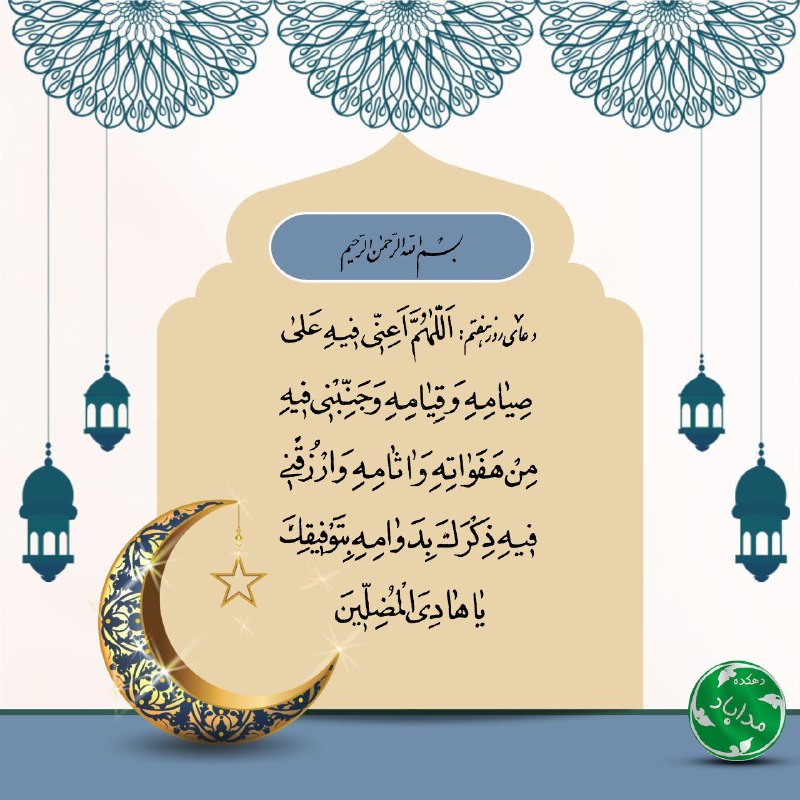 بسم الله الرحمن الرحیم
دعای روز هفتم: اَللّٰهُمَّ اَعِنّی فیهِ عَلیٰ
صِیٰامِهِ وَ قِیٰامِهِ وَ جَنِّبْنی فیهِ
مِنْ هَفَوٰاتِهِ وَ اثٰامِهِ وَ ارْزُقْنی
فیهِ ذِکْرَکَ بِدَوٰامِهِ بِتَوْفیقِکَ
یٰا هٰادِیَ الْمُضِلّینَ
دهکده
مداباد